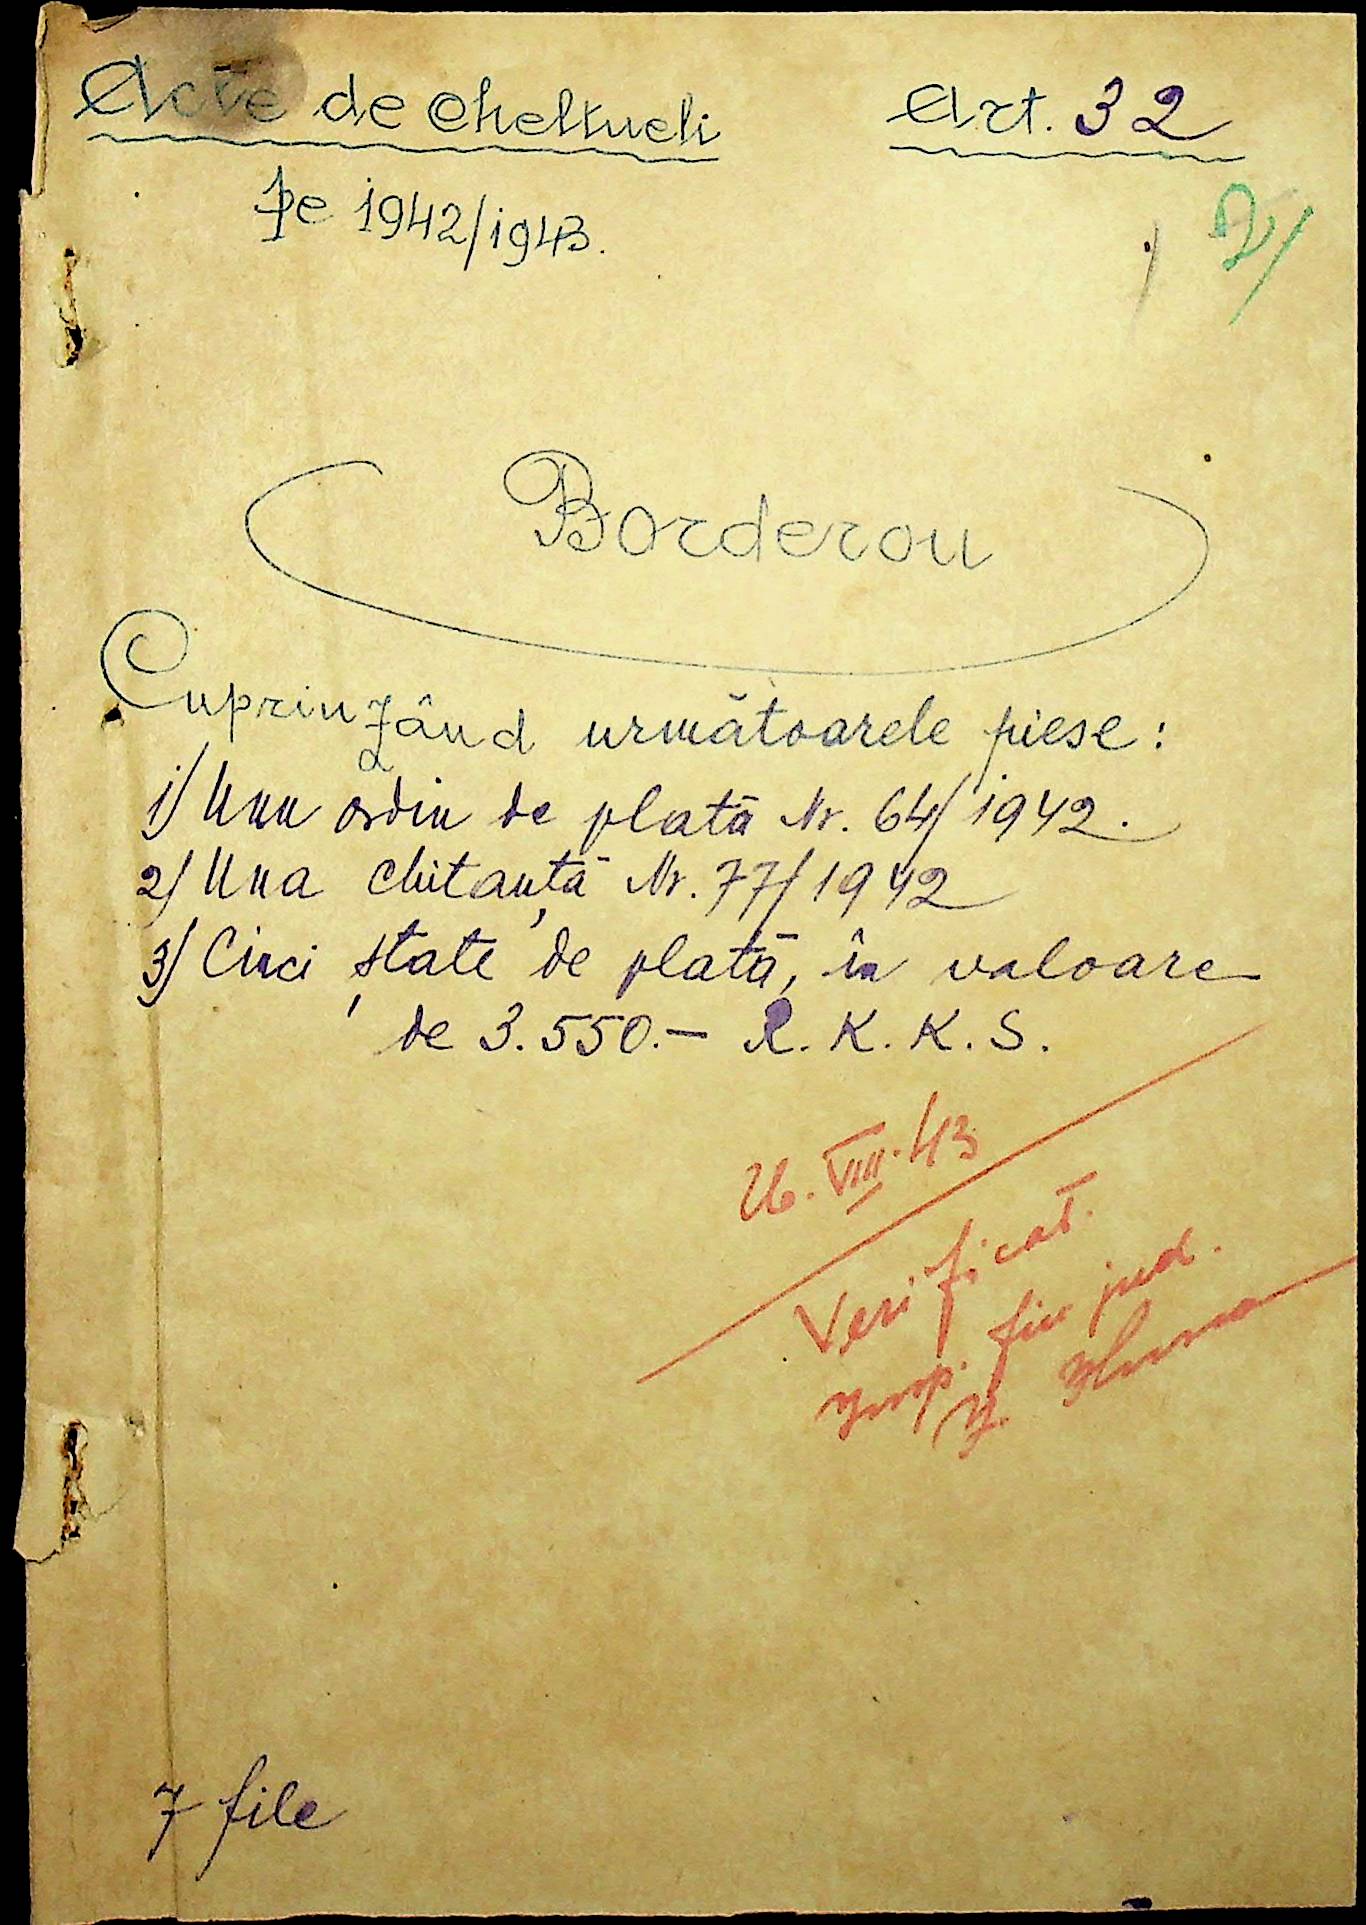 Acte de Cheltueli Art. 32
pe 1942/1943.
Borderou
Cuprinzând următoarele piese:
1) Unu ordin de plată Nr. 64/1942.
2) Una chitanță Nr. 77/1942
3) Cinci ștate de plată, în valoare
de 3.550.— R. K. K. S.
26. VIII. 43
Verificat.
Insp. fin jud.
7 file